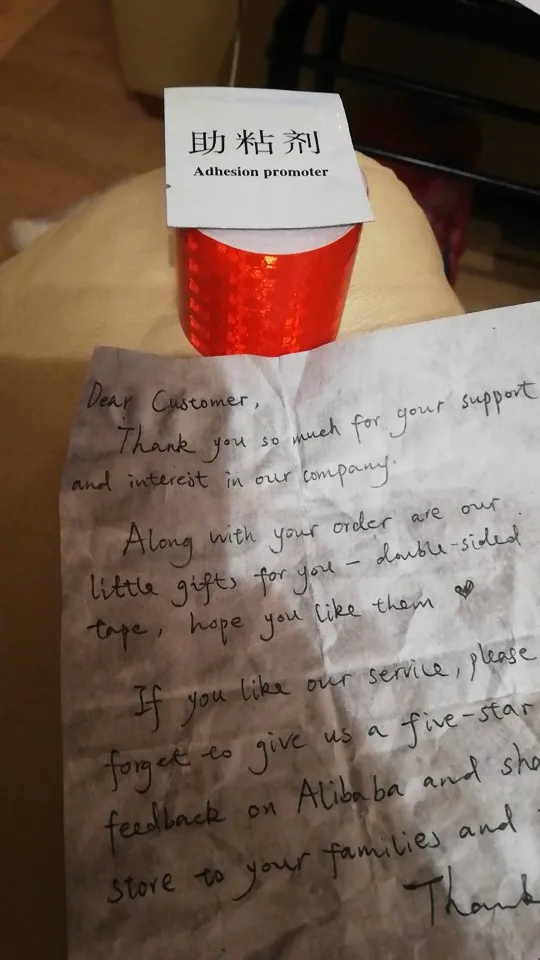 助粘剂
Adhesion promoter
Dear Customer,
Thank you so much for your support
and interest in our company.
Along with your order are our
little gifts for you - double-sided
tape, hope you like them ♥
If you like our service, please
forget to give us a five-star
feedback on Alibaba and
store to your families and
Thank